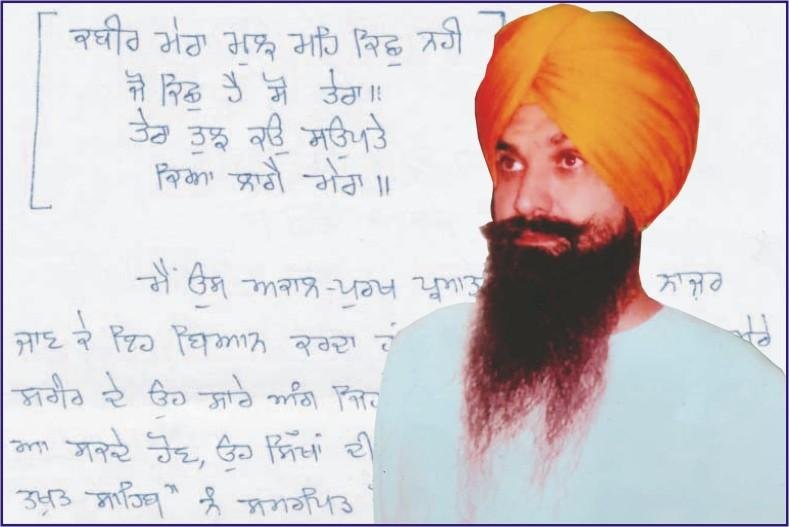 ਕਬੀਰ ਮੇਰਾ ਮੁਝ ਮਹਿ ਕਿਛੁ ਨਹੀ
ਜੋ ਕਿਛੁ ਹੈ ਸੋ ਤੇਰਾ॥
ਤੇਰਾ ਤੁਝ ਕਉ ਸਉਪਤੇ
ਕਿਆ ਲਾਗੈ ਮੇਰਾ॥
ਮੈਂ ਉਸ ਅਕਾਲ-ਪੁਰਖ ਪ੍ਰਮਾਤ ਨਾਜ਼ਰ
ਜਾਣ ਕੇ ਇਹ ਬਿਆਨ ਕਰਦਾ ਹਾਂ ਮੇਰੇ
ਸਰੀਰ ਦੇ ਉਹ ਸਾਰੇ ਅੰਗ ਜਿਹ
ਆ ਸਕਦੇ ਹੋਣ, ਉਹ ਸਿੱਖਾਂ ਦੀ
ਤਖ਼ਤ ਸਾਹਿਬ" ਨੂੰ ਸਮਰਪਿਤ